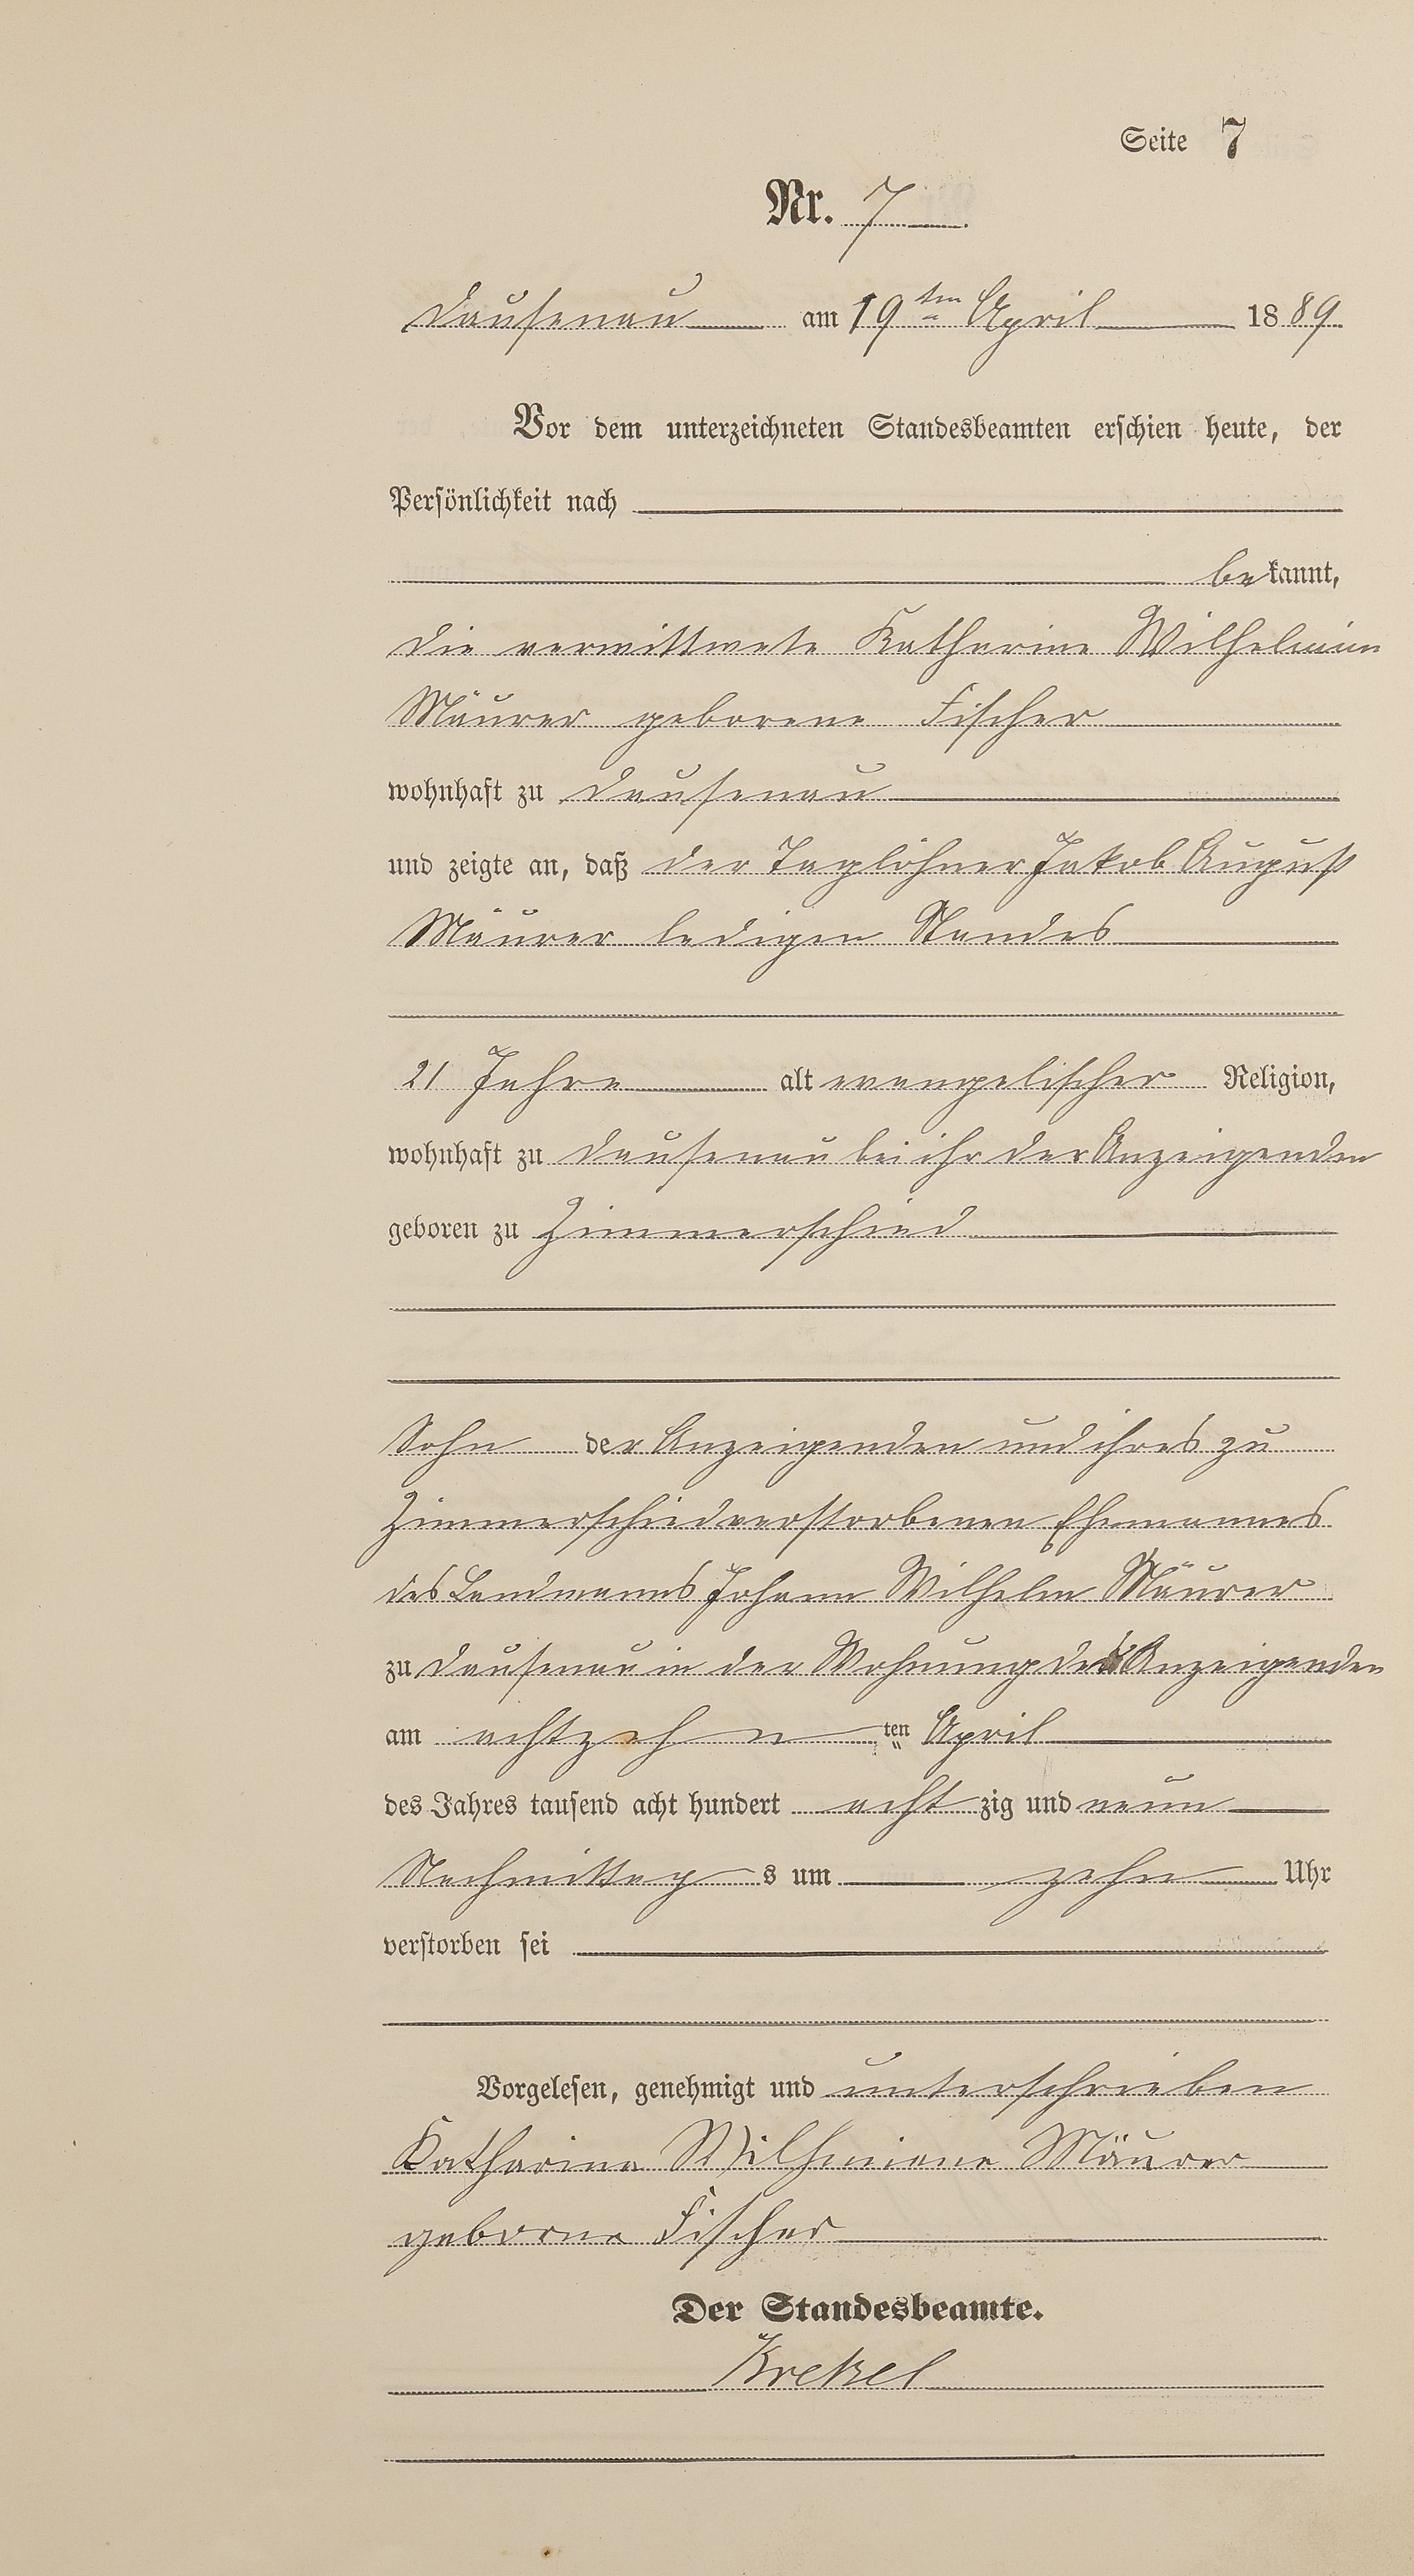 Seite 7
Nr. 7
Dausenau am 19ten April 1889
Vor dem unterzeichneten Standesbeamten erschien heute, der
Persönlichkeit nach
bekannt,
die verwittwete Katharine Wilhelmine
Mäurer geborene Fischer
wohnhaft zu Dausenau
und zeigte an, daß der Taglöhner Jakob August
Mäurer ledigen Standes
21 Jahre alt evangelischer Religion,
wohnhaft zu Dausenau bei ihr der Anzeigenden
geboren zu Zimmerschied
Sohn der Anzeigenden und ihres zu
Zimmerschied verstorbenen Ehemannes
des Landmanns Johann Wilhelm Mäurer
zu Dausenau in der Wohnung der Anzeigenden
am achtzehnten April
des Jahres tausend acht hundert achtzig und neun
Nachmittags um zehn Uhr
verstorben sei
Vorgelesen, genehmigt und unterschrieben
Katharina Wilhmiene Mäurer
geborne Fischer
Der Standesbeamte.
Krekel